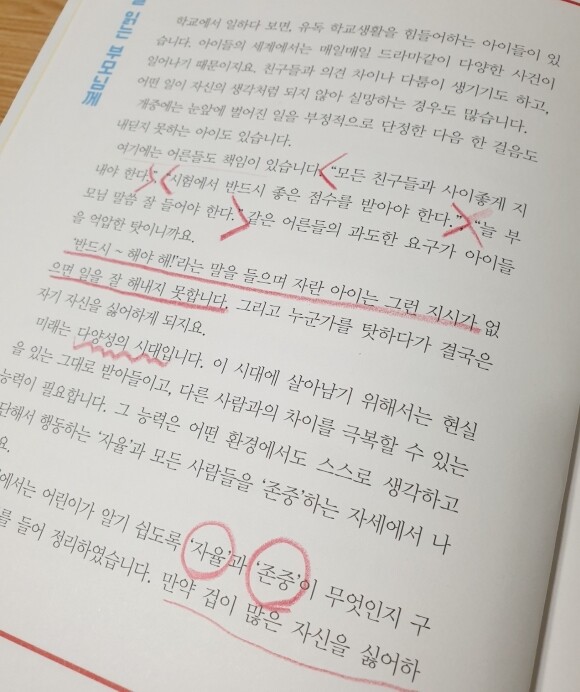 읽는 부모님께
학교에서 일하다 보면, 유독 학교생활을 힘들어하는 아이들이 있
습니다. 아이들의 세계에서는 매일매일 드라마같이 다양한 사건이
일어나기 때문이지요. 친구들과 의견 차이나 다툼이 생기기도 하고,
어떤 일이 자신의 생각처럼 되지 않아 실망하는 경우도 많습니다.
개중에는 눈앞에 벌어진 일을 부정적으로 단정한 다음 한 걸음도
내딛지 못하는 아이도 있습니다.
여기에는 어른들도 책임이 있습니다. “모든 친구들과 사이좋게 지
내야 한다.” “시험에서 반드시 좋은 점수를 받아야 한다.”, “늘 부
모님 말씀 잘 들어야 한다.” 같은 어른들의 과도한 요구가 아이들
을 억압한 탓이니까요.
‘반드시 ~ 해야 해!’라는 말을 들으며 자란 아이는 그런 지시가 없
으면 일을 잘 해내지 못합니다. 그리고 누군가를 탓하다가 결국은
자기 자신을 싫어하게 되지요.
미래는 다양성의 시대입니다. 이 시대에 살아남기 위해서는 현실
을 있는 그대로 받아들이고, 다른 사람과의 차이를 극복할 수 있는
능력이 필요합니다. 그 능력은 어떤 환경에서도 스스로 생각하고
단해서 행동하는 ‘자율’과 모든 사람들을 ‘존중’하는 자세에서 나
요.
에서는 어린이가 알기 쉽도록 ‘자율’과 ‘존중’이 무엇인지 구
를 들어 정리하였습니다. 만약 겁이 많은 자신을 싫어하